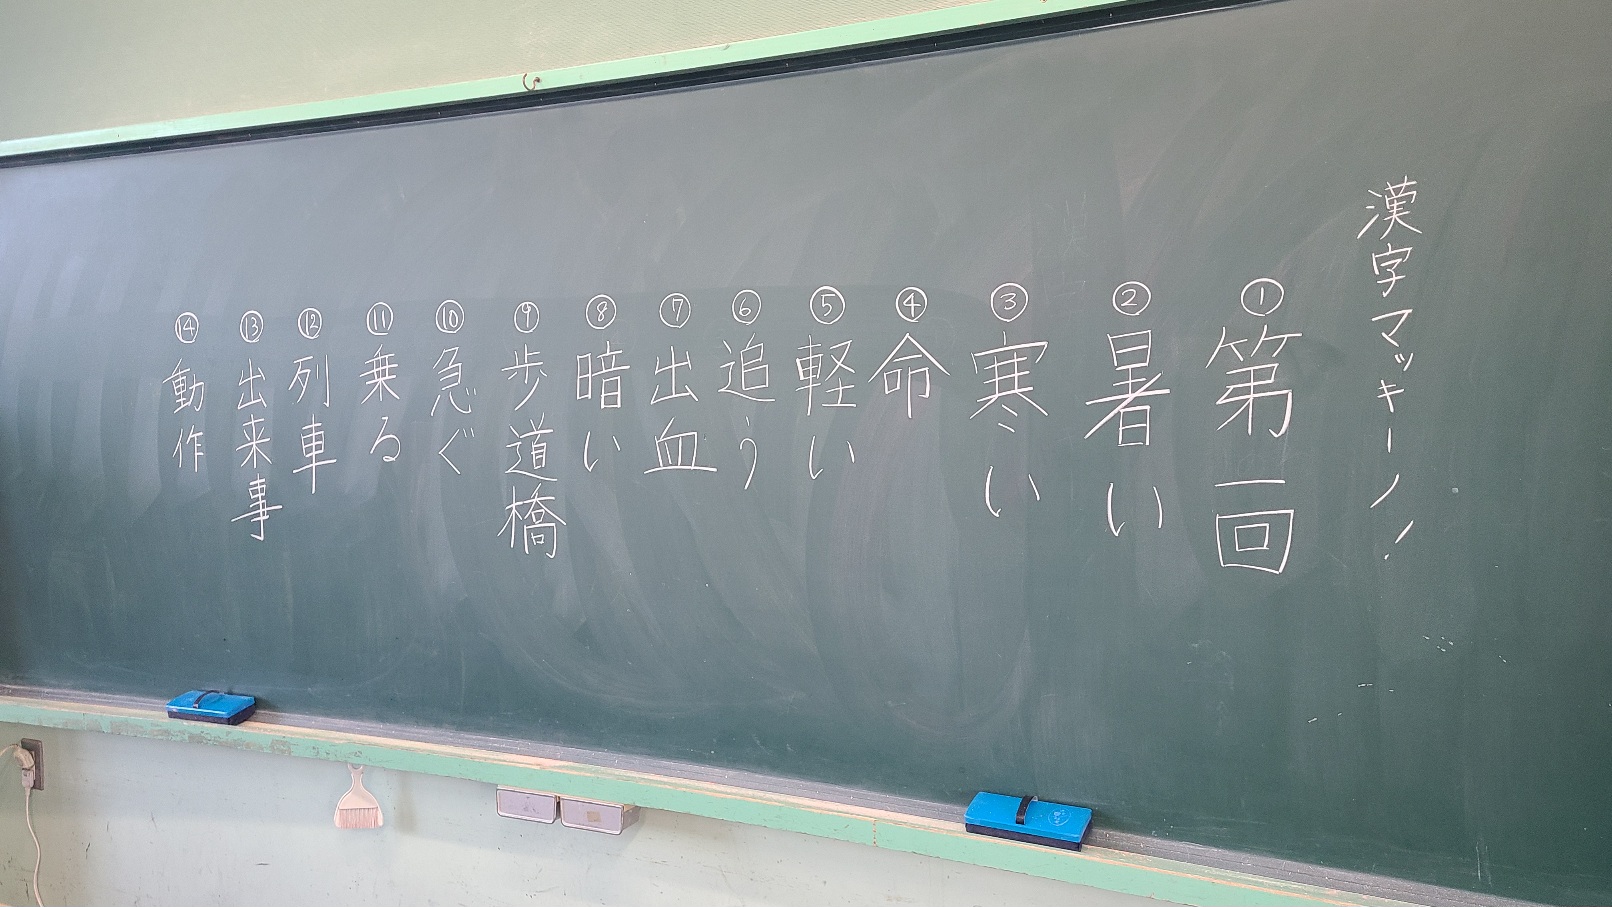 漢字マッキーノ！
①第一回
②暑い
③寒い
④命
⑤軽い
⑥追う
⑦出血
⑧暗い
⑨歩道橋
⑩急ぐ
⑪乗る
⑫列車
⑬出来事
⑭動作